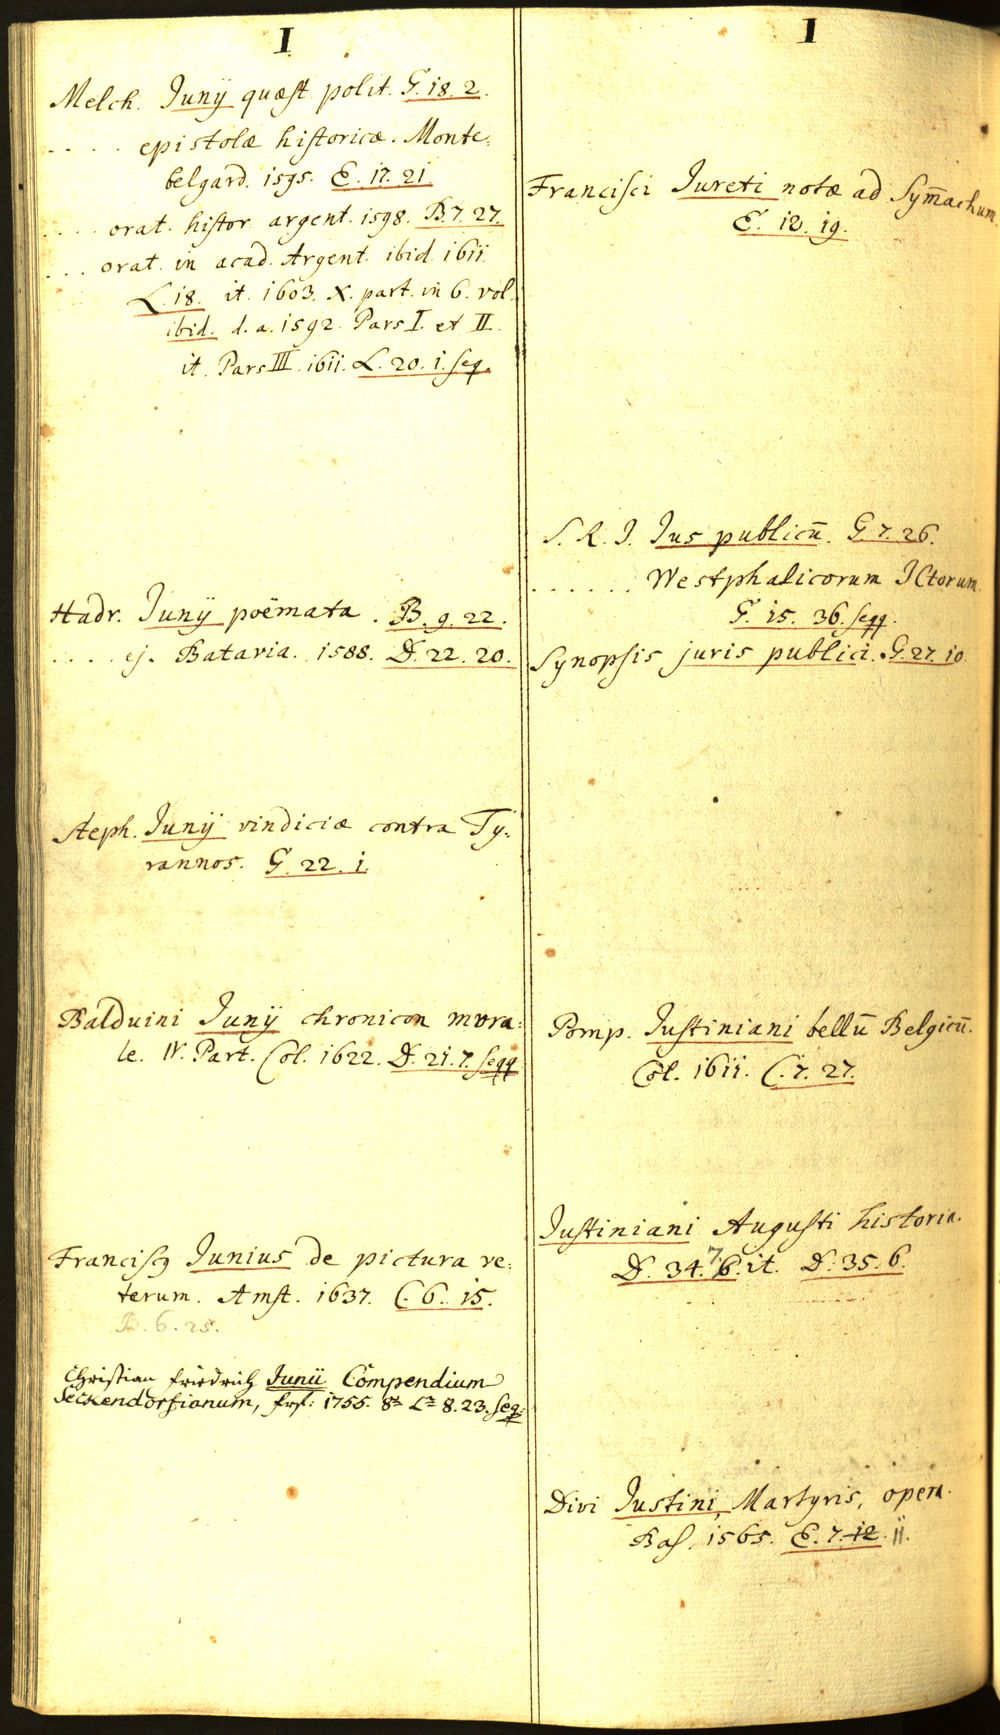 I
Melch. Junÿ quæst polit. G. 18. 2.
. . . . epistolæ historicæ. Monte:
belgard. 1595. E. 17. 21.
. . . . orat. histor. argent. 1598. B. 7. 27.
. . . orat. in acad. Argent. ibid. 1611
L. 18. it. 1603. X. part. in 6. vol.
ibid. d. a. 1592. Pars I. et II.
it. Pars III. 1611. L. 20. 1. seq.
Hadr. Junÿ poëmata. B. 9. 22.
. . . . ej. Batavia. 1588. D. 22. 20.
Steph. Junÿ vindiciæ contra Ty:
rannos. G. 22. 1.
Balduini Junÿ chronicon mora:
le. IV. Part. Col. 1622. D. 21. 7. seqq
Francisꝯ Junius de pictura ve:
terum. Amst. 1637. C. 6. 15.
B. 6. 25.
Christian Friedrich Junii Compendium
Seckendorfianum, frf: 1755. 8º L. 8. 23. seq:
I
Francisci Jureti notæ ad Sym̄achum
E. 12. 19.
S. R. I. Jus publicū. G. 7. 26.
. . . . . . Westphalicorum ICtorum.
G. 15. 36. seqq.
Synopsis juris publici. G. 27. 10
Pomp. Justiniani bellū Belgicū.
Col. 1611. C. 7. 27.
Justiniani Augusti historia.
D. 34. 7. 6. it. D. 35. 6.
Divi Justini, Martyris, opera.
Bas. 1565. E. 7. 12. 11.